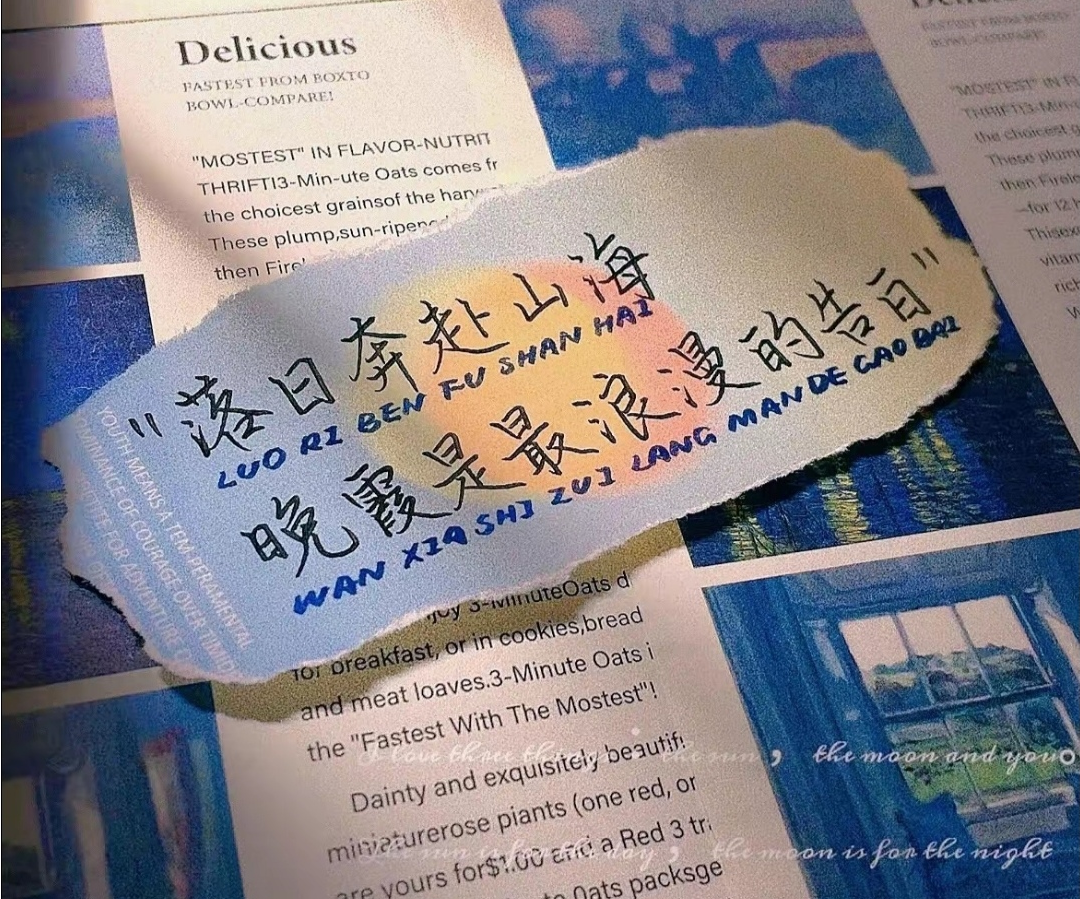 Delicious
FASTEST FROM BOXTO
BOWL-COMPARE!
"MOSTEST" IN FLAVOR-NUTRIT
THRIFTI3-Min-ute Oats comes fr
the choicest grainsof the har
These plump,sun-ripened
then Firel
"落日奔赴山海
LUO RI BEN FU SHAN HAI
晚霞是最浪漫的告白"
WAN XIA SHI ZUI LANG MAN DE GAO BAI
YOUTH MEANS A TEM-PERAMENTAL
OVER TIMID
COURAGE
FOR ADVENTURE
joy 3-MinuteOats d
for breakfast, or in cookies,bread
and meat loaves.3-Minute Oats i
the "Fastest With The Mostest"!
Dainty and exquisitely beautif
miniaturerose piants (one red, or
are yours for$1.00 and a Red 3 tr
0ats packsge
"MOSTEST" IN FL
THRIFTI3-Min-u
the choicest g
These plump
then Firele
—for 12 h
Thisex
vitam
rich
I love three things : the sun , the moon and you。
the sun is for the day , the moon is for the night